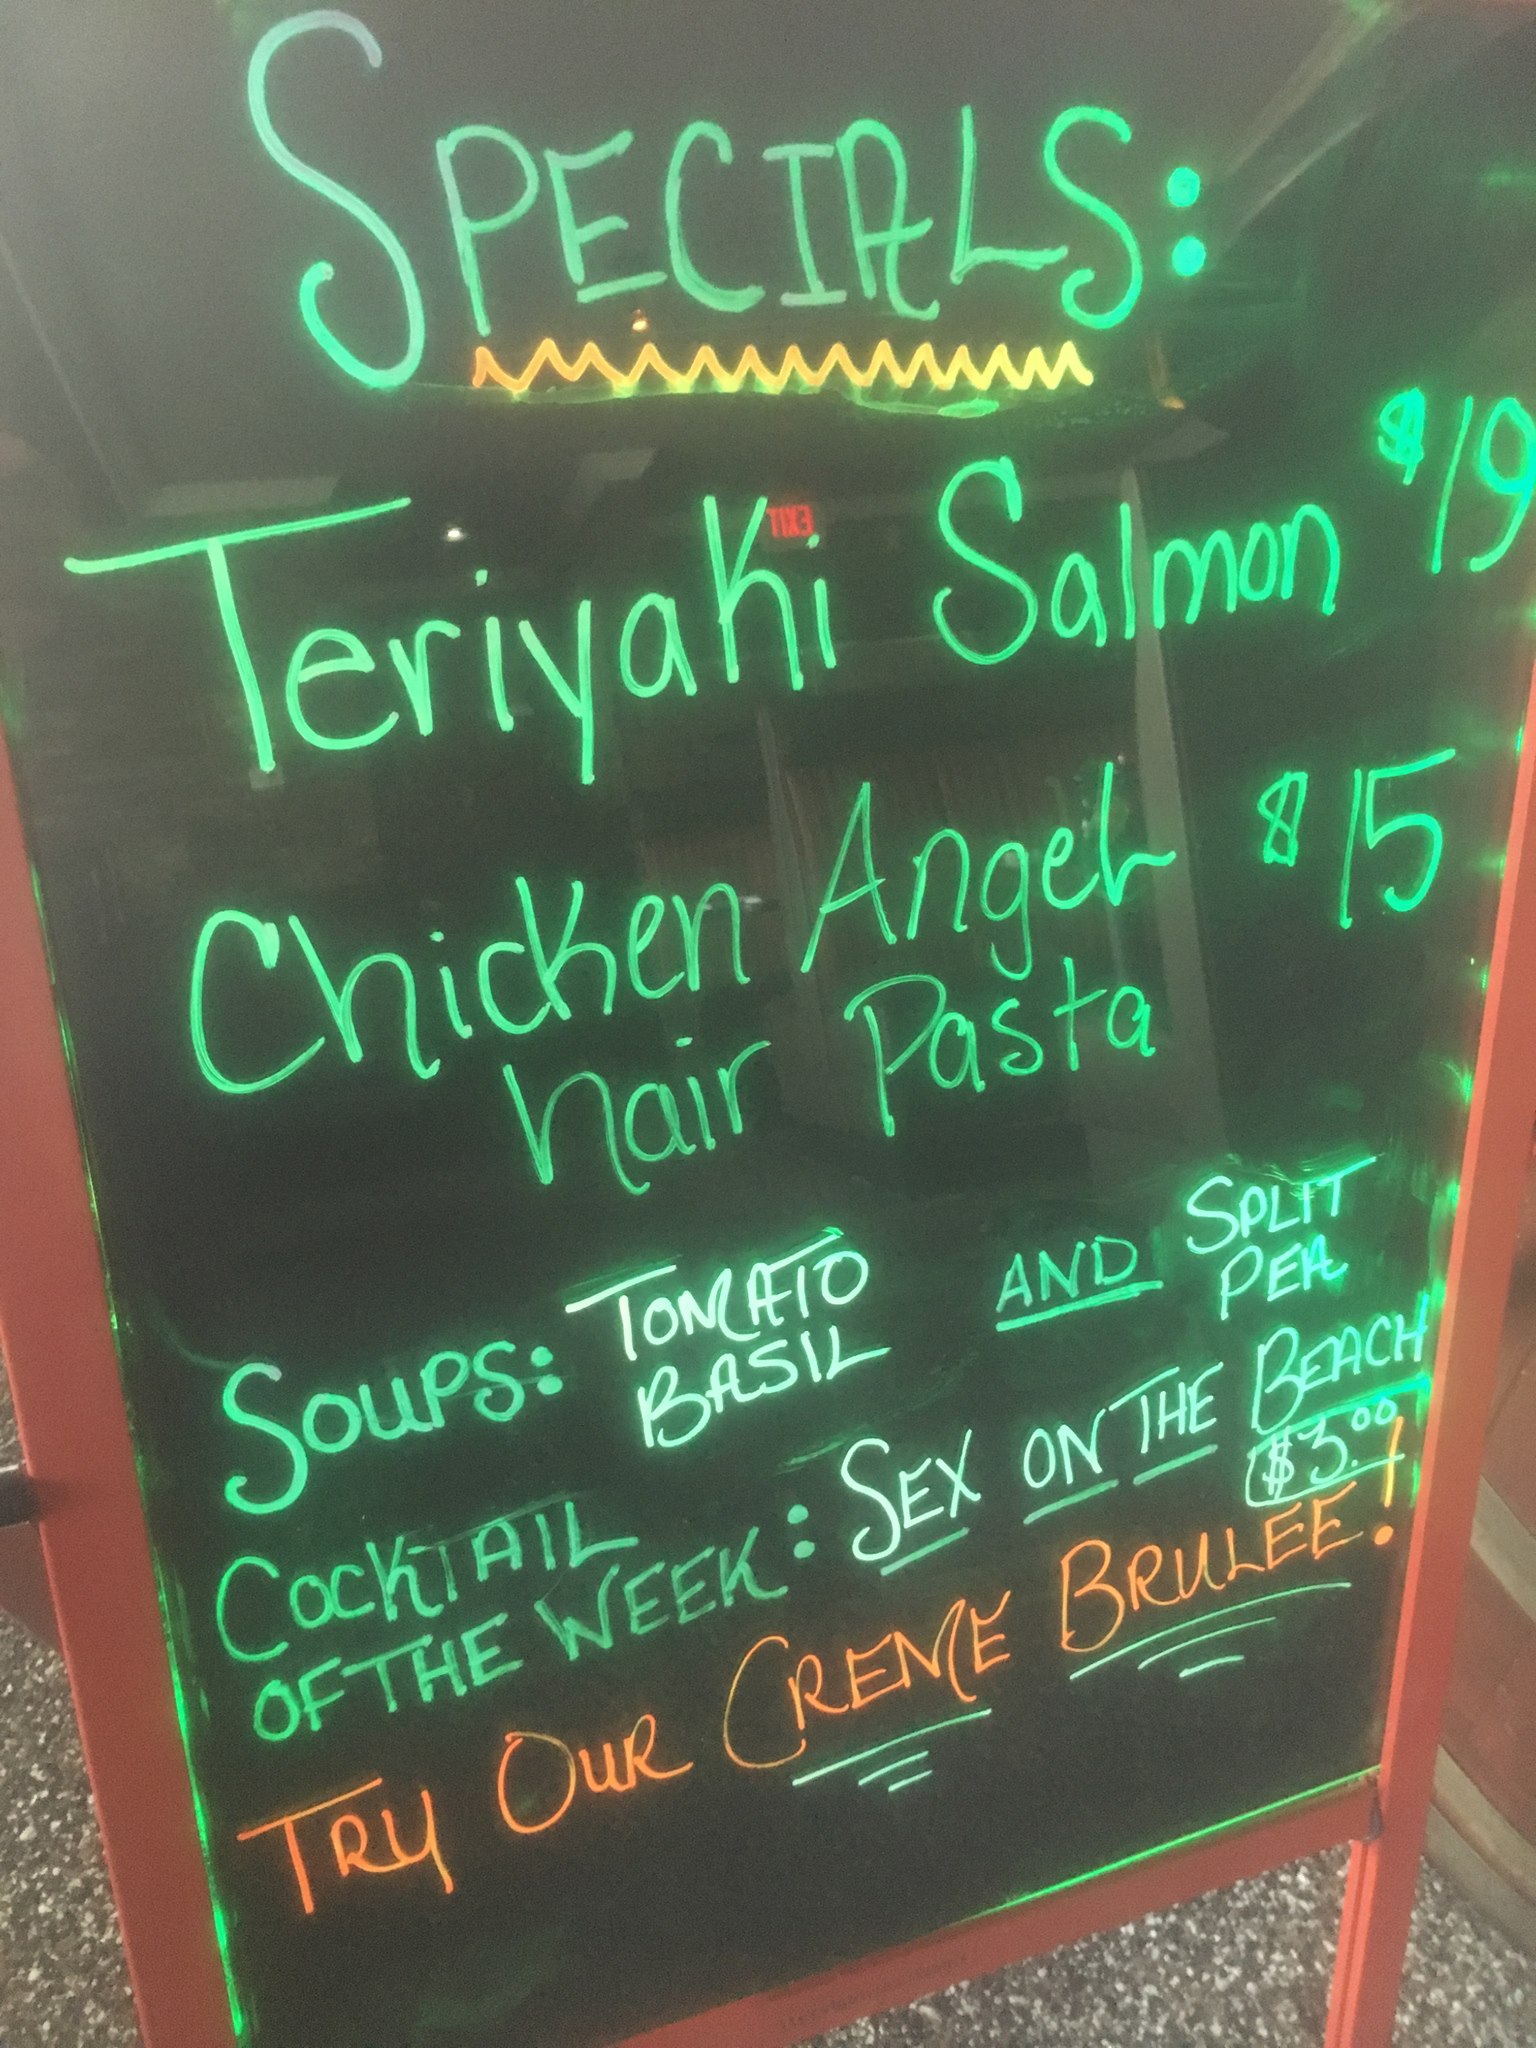 SPECIALS:
Teriyaki Salmon $19
Chicken Angel $15
hair Pasta
SOUPS: TOMATO BASIL AND SPLIT PEA
COCKTAIL OF THE WEEK: SEX ON THE BEACH $3.00
TRY OUR CREME BRULEE!
EXIT